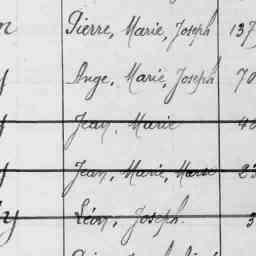 n Pierre, Marie, Joseph 137
y Ange, Marie, Joseph 70
y Jean, Marie
y Jean, Marie, Marie 23
y Léon, Joseph. 3